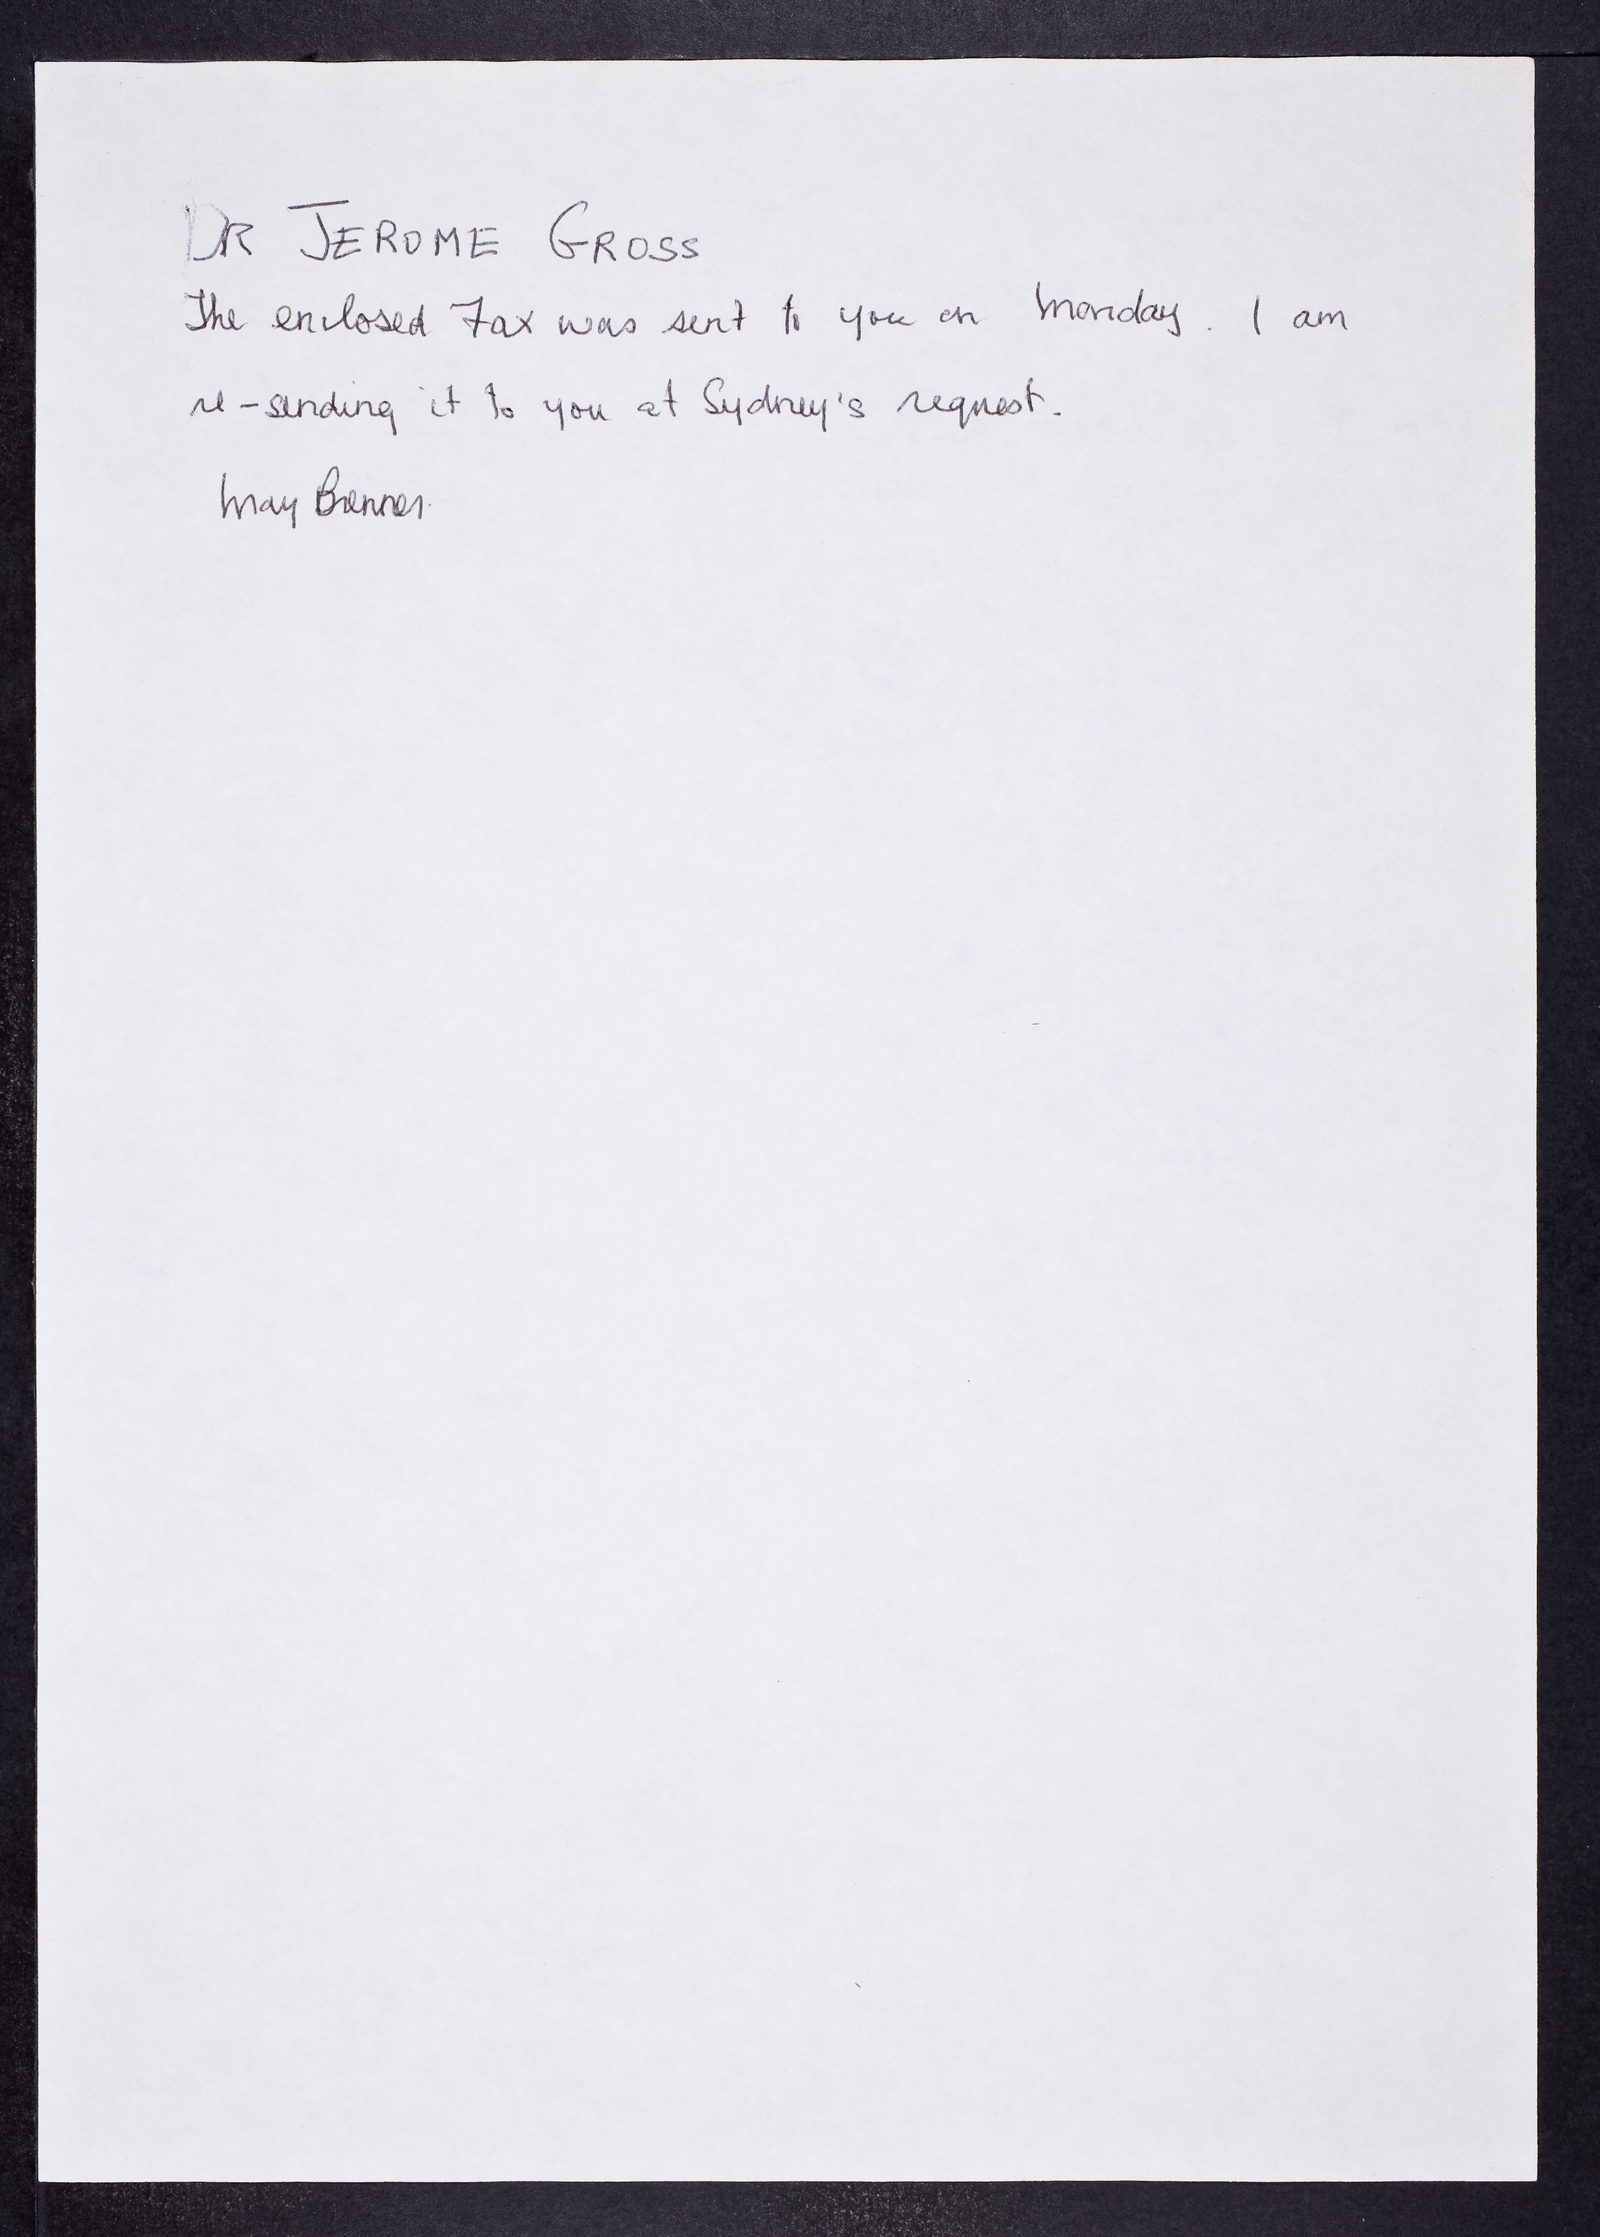 DR JEROME GROSS
The enclosed Fax was sent to you on Monday. I am
re-sending it to you at Sydney's request.
May Brenner.